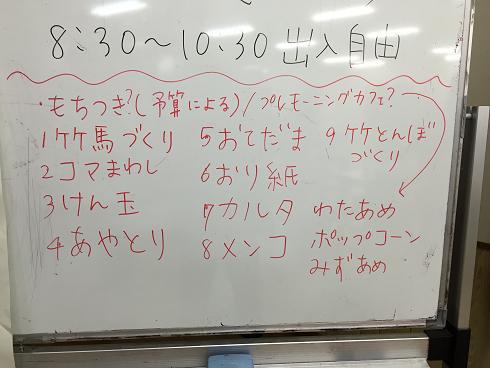 8:30～10:30 出入自由
・もちつき?(予算による)/プレモーニングカフェ?
1竹馬づくり
2コマまわし
3けん玉
4あやとり
5おてだま
6おり紙
7カルタ
8メンコ
9竹とんぼ
づくり
わたあめ
ポップコーン
みずあめ